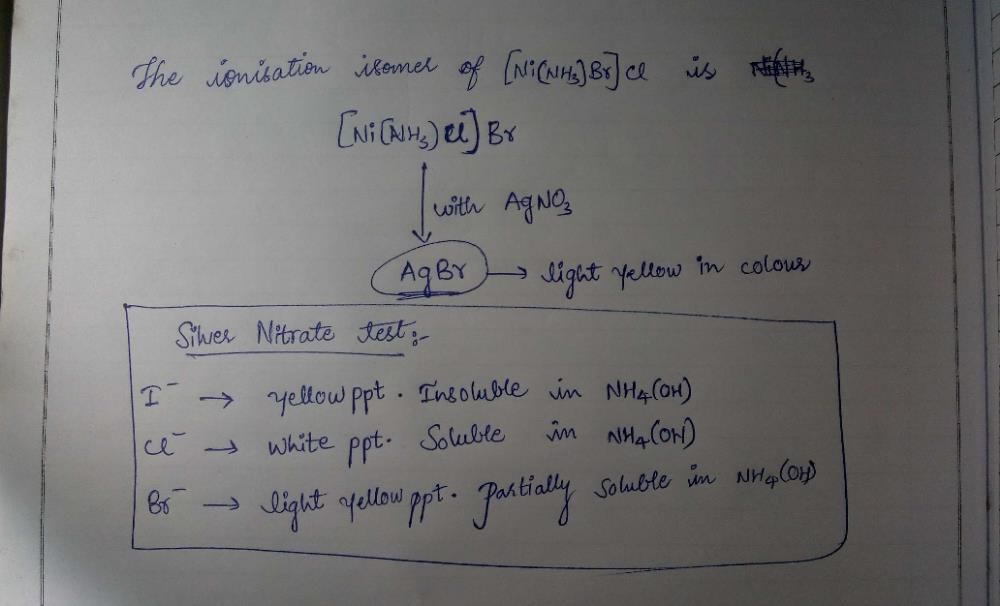 The ionisation isomer of [Ni(NH₃)Br]Cl is
[Ni(NH₃)Cl]Br
with AgNO₃
AgBr → light yellow in colour
Silver Nitrate test:-
I⁻ → yellow ppt. Insoluble in NH₄(OH)
Cl⁻ → White ppt. Soluble in NH₄(OH)
Br⁻ → light yellow ppt. Partially Soluble in NH₄(OH)